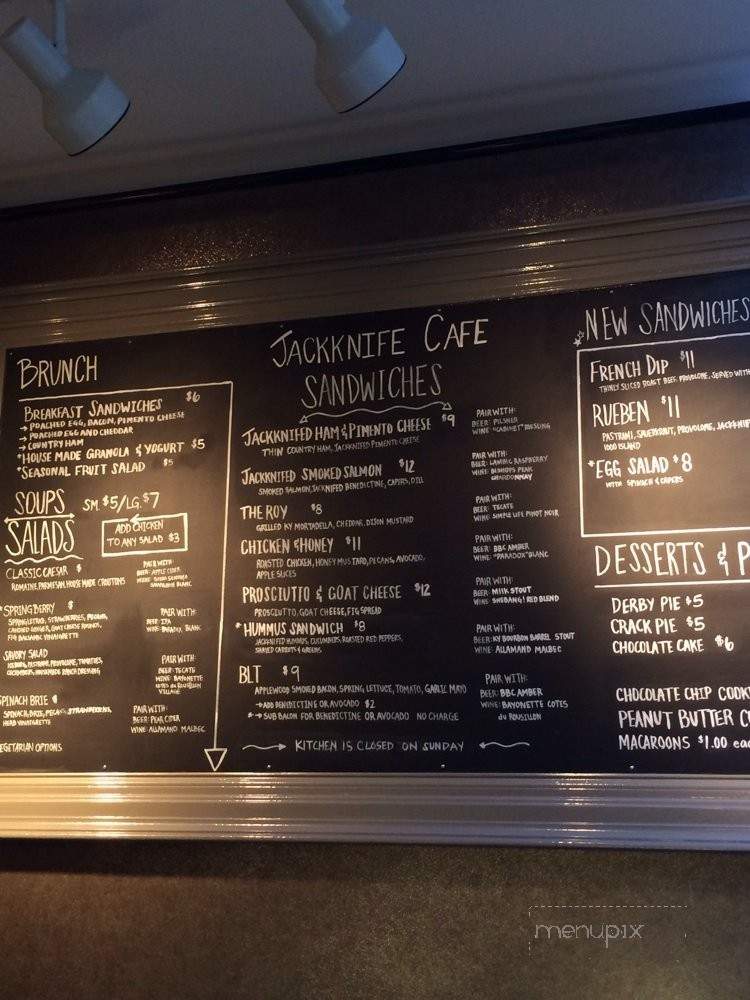 BRUNCH
BREAKFAST SANDWICHES $6
→ POACHED EGG, BACON, PIMENTO CHEESE
→ POACHED EGG AND CHEDDAR
→ COUNTRY HAM
*HOUSE MADE GRANOLA & YOGURT $5
*SEASONAL FRUIT SALAD $5
SOUPS SM. $5/LG. $7
SALADS
ADD CHICKEN
TO ANY SALAD $3
CLASSIC CAESAR $
ROMAINE, PARMESAN, HOUSE MADE CROUTONS
PAIR WITH:
BEER: APPLE CIDER
BLANC
*SPRINGBERRY $
STRAWBERRIES, PECANS,
CANDIED GINGER, GOAT CHEESE ROUNDS,
FIG BALSAMIC VINAIGRETTE
PAIR WITH:
BEER: IPA
WINE: PARADOX, BLANC
SAVORY SALAD
ICEBURG, PASTRAMI, PROVOLONE, TOMATOES,
CUCUMBERS, HOMEMADE RANCH DRESSING
PAIR WITH:
BEER: TECATE
WINE: BAYONETTE
COTES du ROUSILLON
VILLAGE
SPINACH BRIE $
SPINACH, BRIE, PECANS, STRAWBERRIES,
HERB VINAIGRETTE
PAIR WITH:
BEER: PEAR CIDER
WINE: ALLAMAND MALBEC
VEGETARIAN OPTIONS
JACKKNIFE CAFE
SANDWICHES
JACKKNIFED HAM & PIMENTO CHEESE $9
THIN COUNTRY HAM, JACKKNIFED PIMENTO CHEESE
PAIR WITH:
BEER: PILSNER
WINE: "CABINET" RIESLING
JACKKNIFED SMOKED SALMON $12
SMOKED SALMON, JACKNIFED BENEDICTINE, CAPERS, DILL
PAIR WITH:
BEER: LAMBIC RASPBERRY
WINE: BISHOPS PEAK
CHARDONNAY
THE ROY $8
GRILLED KY MORTADELLA, CHEDDAR, DIJON MUSTARD
PAIR WITH:
BEER: TECATE
WINE: SIMPLE LIFE PINOT NOIR
CHICKEN & HONEY $11
ROASTED CHICKEN, HONEY MUSTARD, PECANS, AVOCADO,
APPLE SLICES
PAIR WITH:
BEER: BBC AMBER
WINE: "PARADOX" BLANC
PROSCIUTTO & GOAT CHEESE $12
PROSCIUTTO, GOAT CHEESE, FIG SPREAD
PAIR WITH:
BEER: MILK STOUT
WINE: SHEBANG! RED BLEND
*HUMMUS SANDWICH $8
JACKKNIFED HUMMUS, CUCUMBERS, ROASTED RED PEPPERS,
SHAVED CARROTS & GREENS
PAIR WITH:
BEER: KY BOURBON BARREL STOUT
WINE: ALLAMAND MALBEC
BLT $9
APPLEWOOD SMOKED BACON, SPRING LETTUCE, TOMATO, GARLIC MAYO
→ ADD BENEDICTINE OR AVOCADO $2
*→ SUB BACON FOR BENEDICTINE OR AVOCADO NO CHARGE
PAIR WITH:
BEER: BBC AMBER
WINE: BAYONETTE COTES
du ROUSILLON
KITCHEN IS CLOSED ON SUNDAY
NEW SANDWICHES
FRENCH DIP $11
THINLY SLICED ROAST BEEF, PROVOLONE, SERVED WITH
RUEBEN $11
PASTRAMI, SAUERKRAUT, PROVOLONE, JACKKNIFE
1000 ISLAND
*EGG SALAD $8
WITH SPINACH & CAPERS
DESSERTS & P
DERBY PIE $5
CRACK PIE $5
CHOCOLATE CAKE $6
CHOCOLATE CHIP COOK
PEANUT BUTTER C
MACAROONS $1.00 eac
menupix